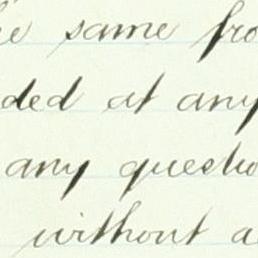 same fro
ded at any
any questio
without a